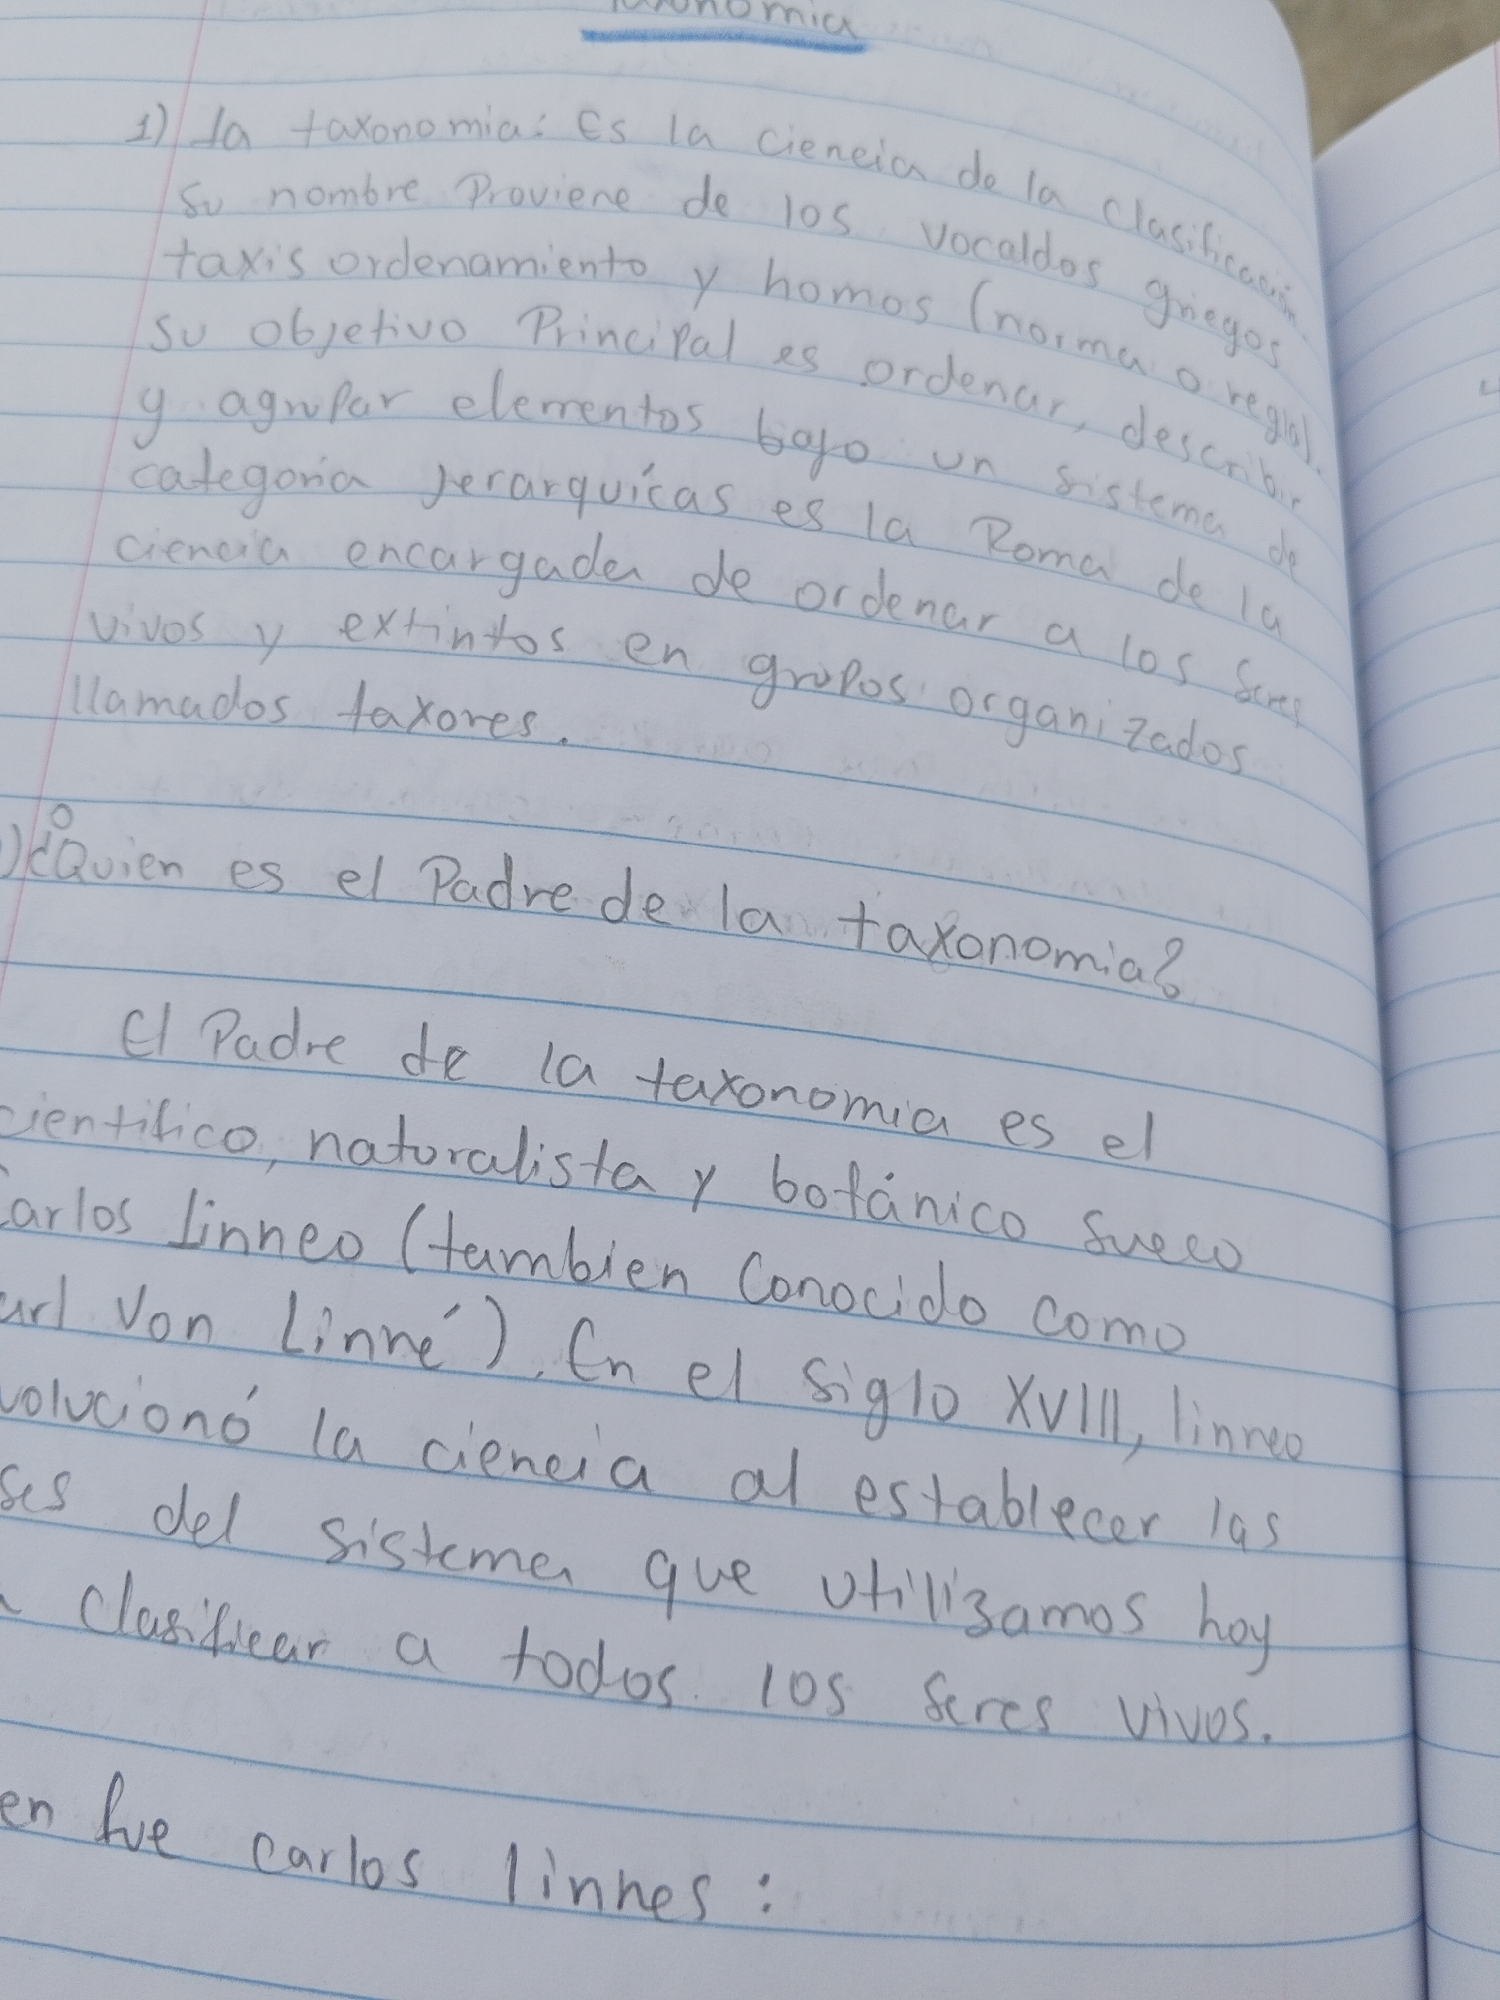 Taxonomia
1) La taxonomia: Es la ciencia de la clasificación.
Su nombre Proviene de los vocaldos griegos
taxis ordenamiento y homos (norma o regla).
Su objetivo Principal es ordenar, describir
y agrupar elementos bajo un sistema de
categoria jerarquícas es la Roma de la
ciencia encargada de ordenar a los seres
vivos y extintos en grupos organizados
llamados taxores.
)¿Quien es el Padre de la taxonomia?
El Padre de la taxonomia es el
cientifico, naturalista y botánico sueco
Carlos Linneo (tambien Conocido como
arl Von Linné). En el siglo XVIII, linneo
volucionó la ciencia al establecer las
ses del sistema que utilizamos hoy
a clasificar a todos los seres vivos.
en fue carlos linnes: